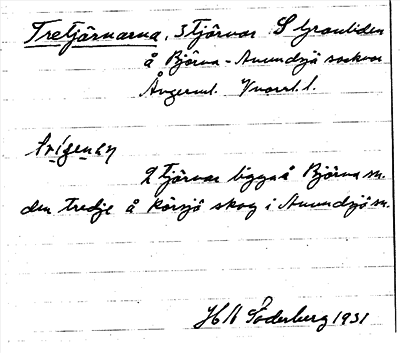 Tretjärnarna, 3 tjärnar S Granliden
å Björna - Anundsjö socknar
Ångerml. Vnorrl. l.
2 tjärnar ligga å Björna sn.
den tredje å Körsjö skog i Anundsjö sn.
H M Söderberg 1931